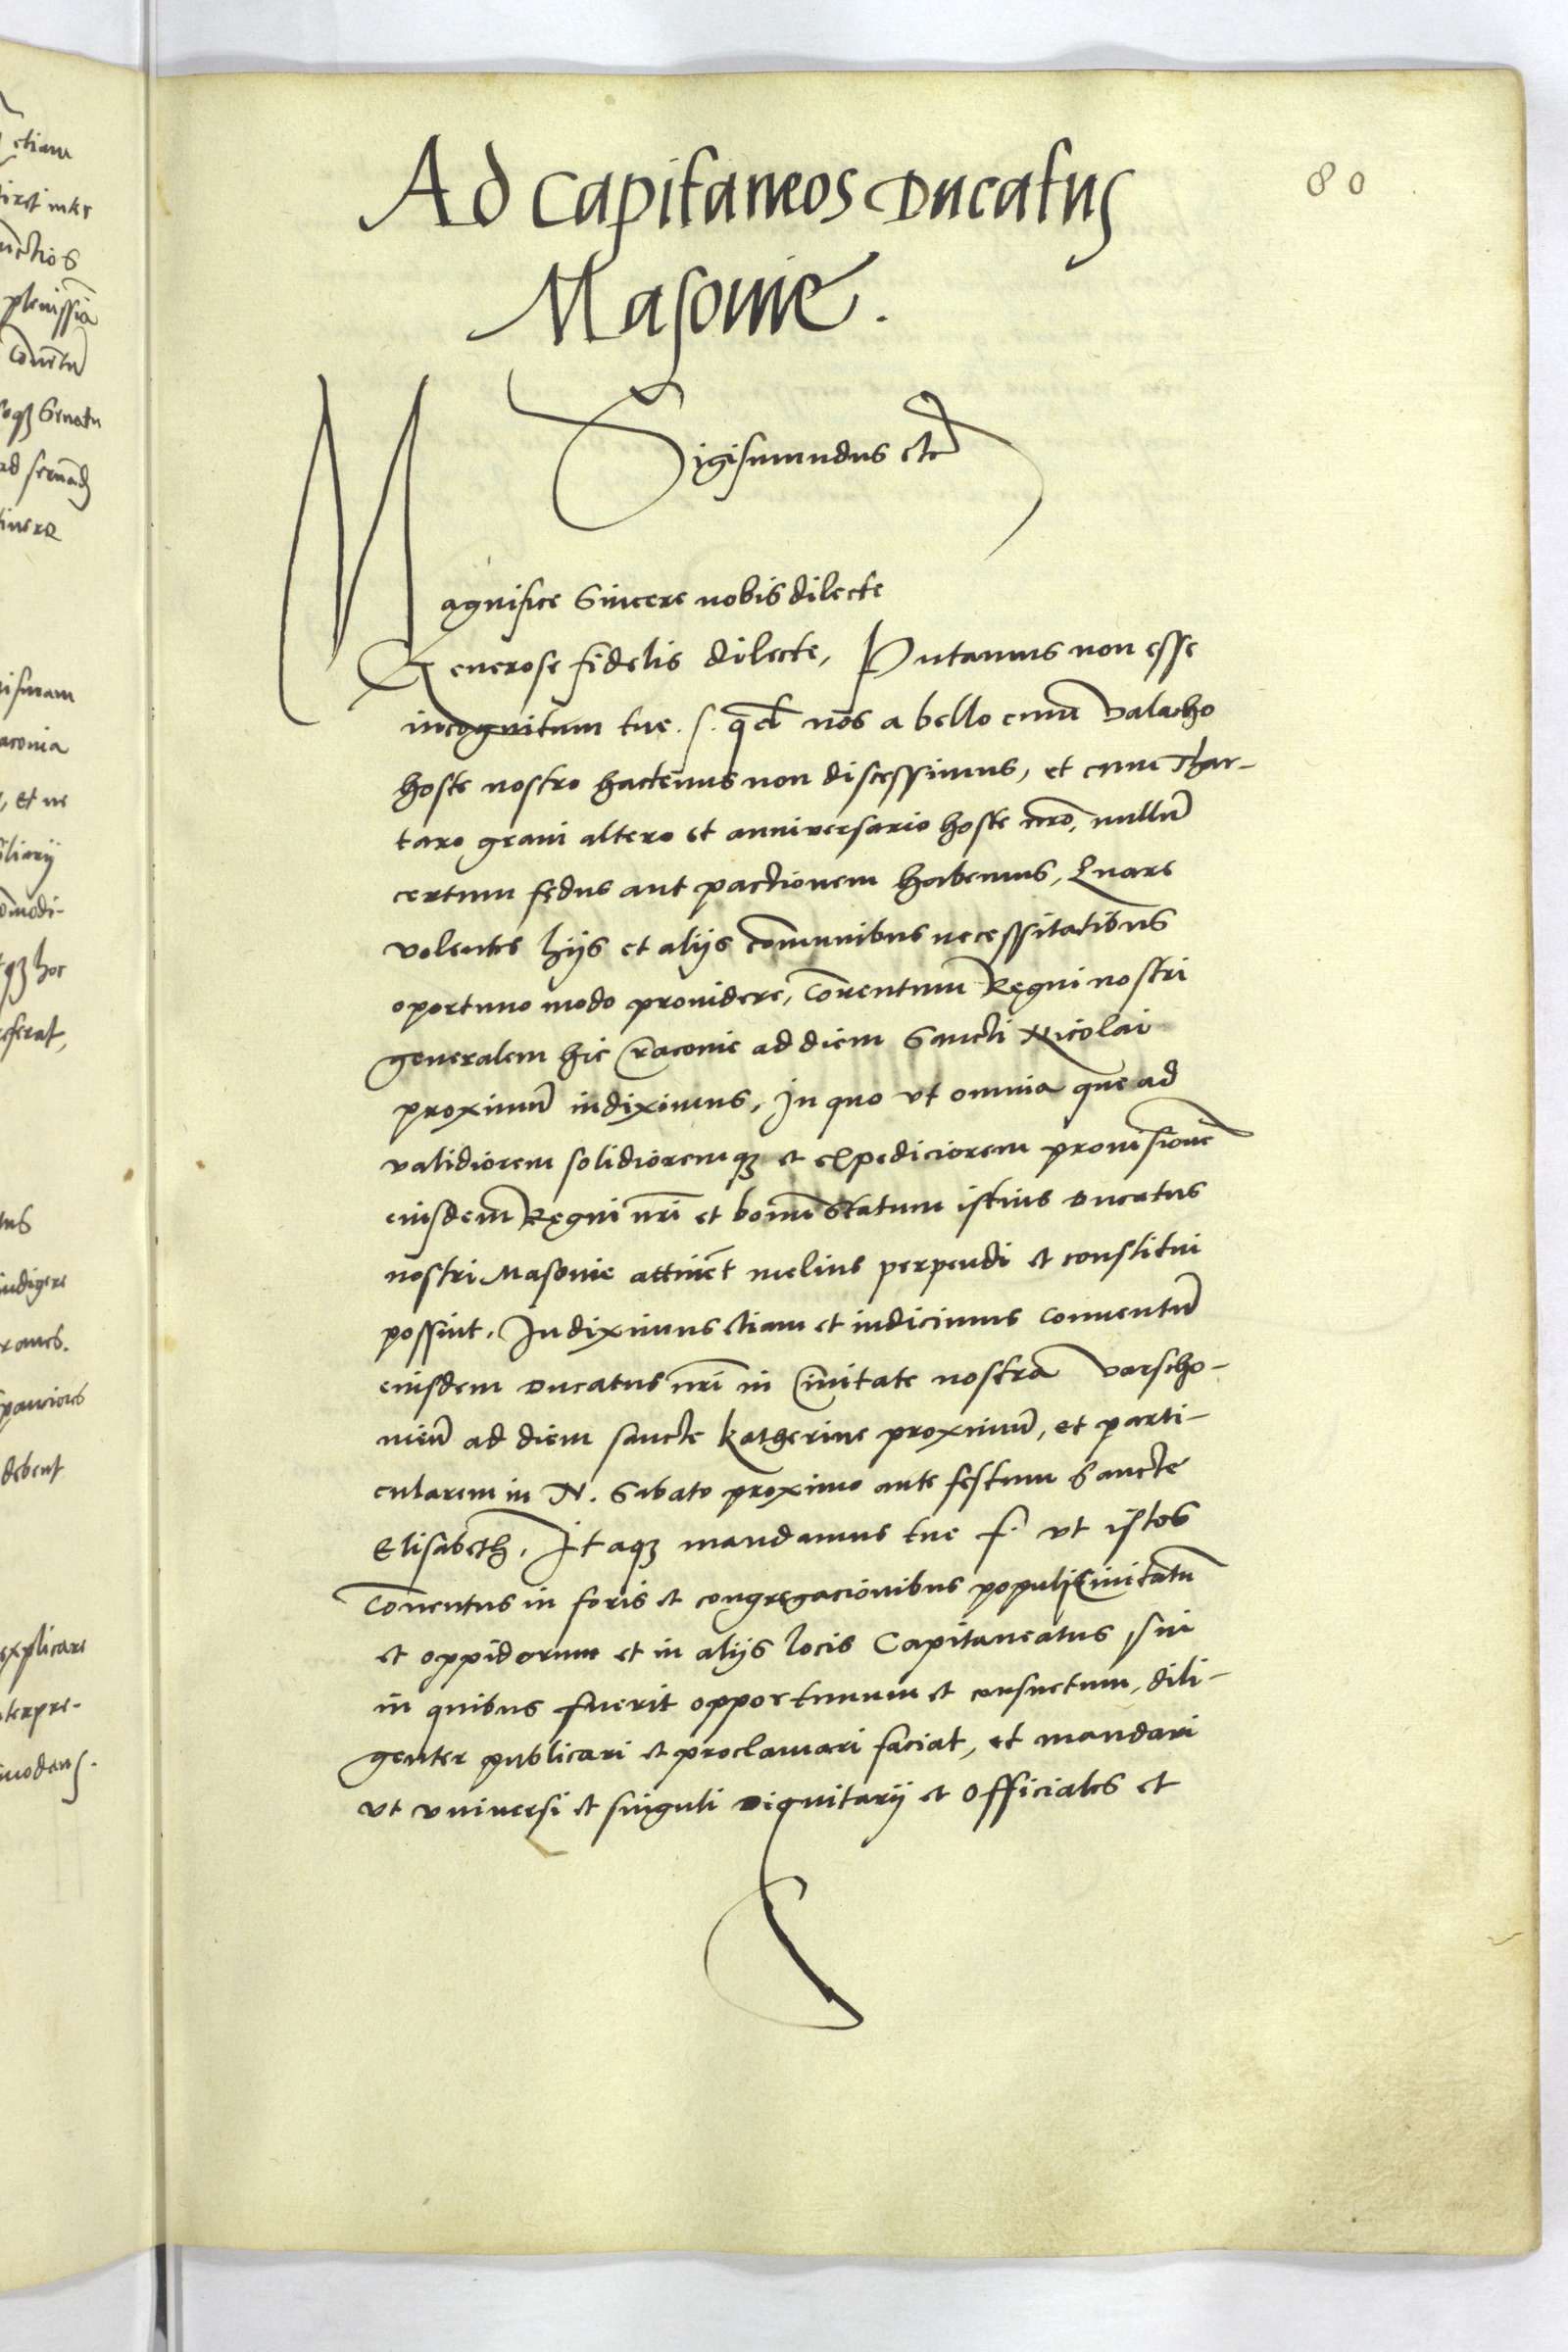 80
Ad Capitaneos Ducatus
Masovie.
Sigismundus etc
Magnifice Sincere nobis dilecte
Generose fidelis dilecte, Putamus non esse
incognitum tue. s. qđ nos a bello cum Valacho
hoste nostro hactenus non discessimus, et cum Thar-
taro gravi altero et anniversario hoste nrō, nullū
certum fędus aut pactionem habemus, Quare
volentes hijs et alijs cōmunibus necessitatibus
oportuno modo providere, Conventum Regni nostri
generalem hic Cracovie ad diem Sancti Nicolai
proximū indiximus, In quo vt omnia que ad
validiorem solidioremqꝫ et expediciorem provisionē
eiusdem Regni nrī et bonū statum istius Ducatus
nostri Masovie attinēt melius perpendi et constitui
possint. Indiximus etiam et indicimus conventū
eiusdem Ducatus nrī in Civitate nostra Varscho-
vieñ ad diem sancte Katherine proximū, et parti-
cularem in N. Sabato proximo ante festum Sancte
Elisabeth. Itaqꝫ mandamus tue f. vt istos
Conventus in foris et congregacionibus populi Civitatū
et oppidorum et in alijs locis Capitaneatus sui
in quibus fuerit opportunum et consuetum, dili-
genter publicari et proclamari faciat, et mandari
vt vniversi et singuli Dignitarij et Officiales et
etiam
plenissīa
Senatu
aconia
, et ne
hoc
indigere
pauciores
debent
explicare
terpre-